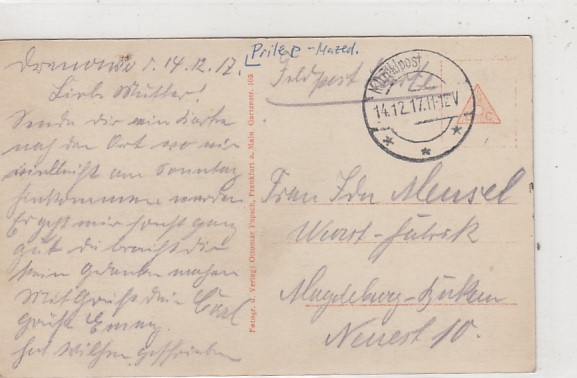 Drenowo d. 14.12.17.
Liebe Mutter!
Sende dir ein Karte
nach den Ort wo wir
vielleicht am Sonntag
hinkommen werden
Es geht mir sonst ganz
gut du brauchst dir
kein Gedanken machen
Mit Gruß dein Carl
Gruß
hat geschrieben
Prilep - Mazed.
Feldpost Karte
14.12.17.11-12V
Frau Ida Mensel
Wurst-Fabrik
Magdeburg-Buckau
Neuest 10.
Fotogr. u. Verlag: Ottomar Frankfurt a. Main, Gartenstr. 103